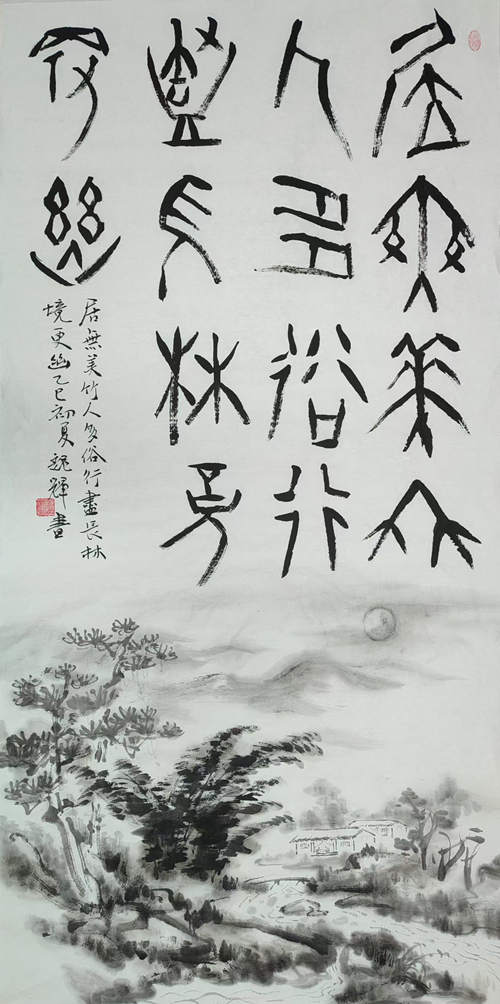 居無美竹
人多俗行
盡長林境
更幽
居無美竹人多俗行盡長林
境更幽乙巳初夏魏輝書